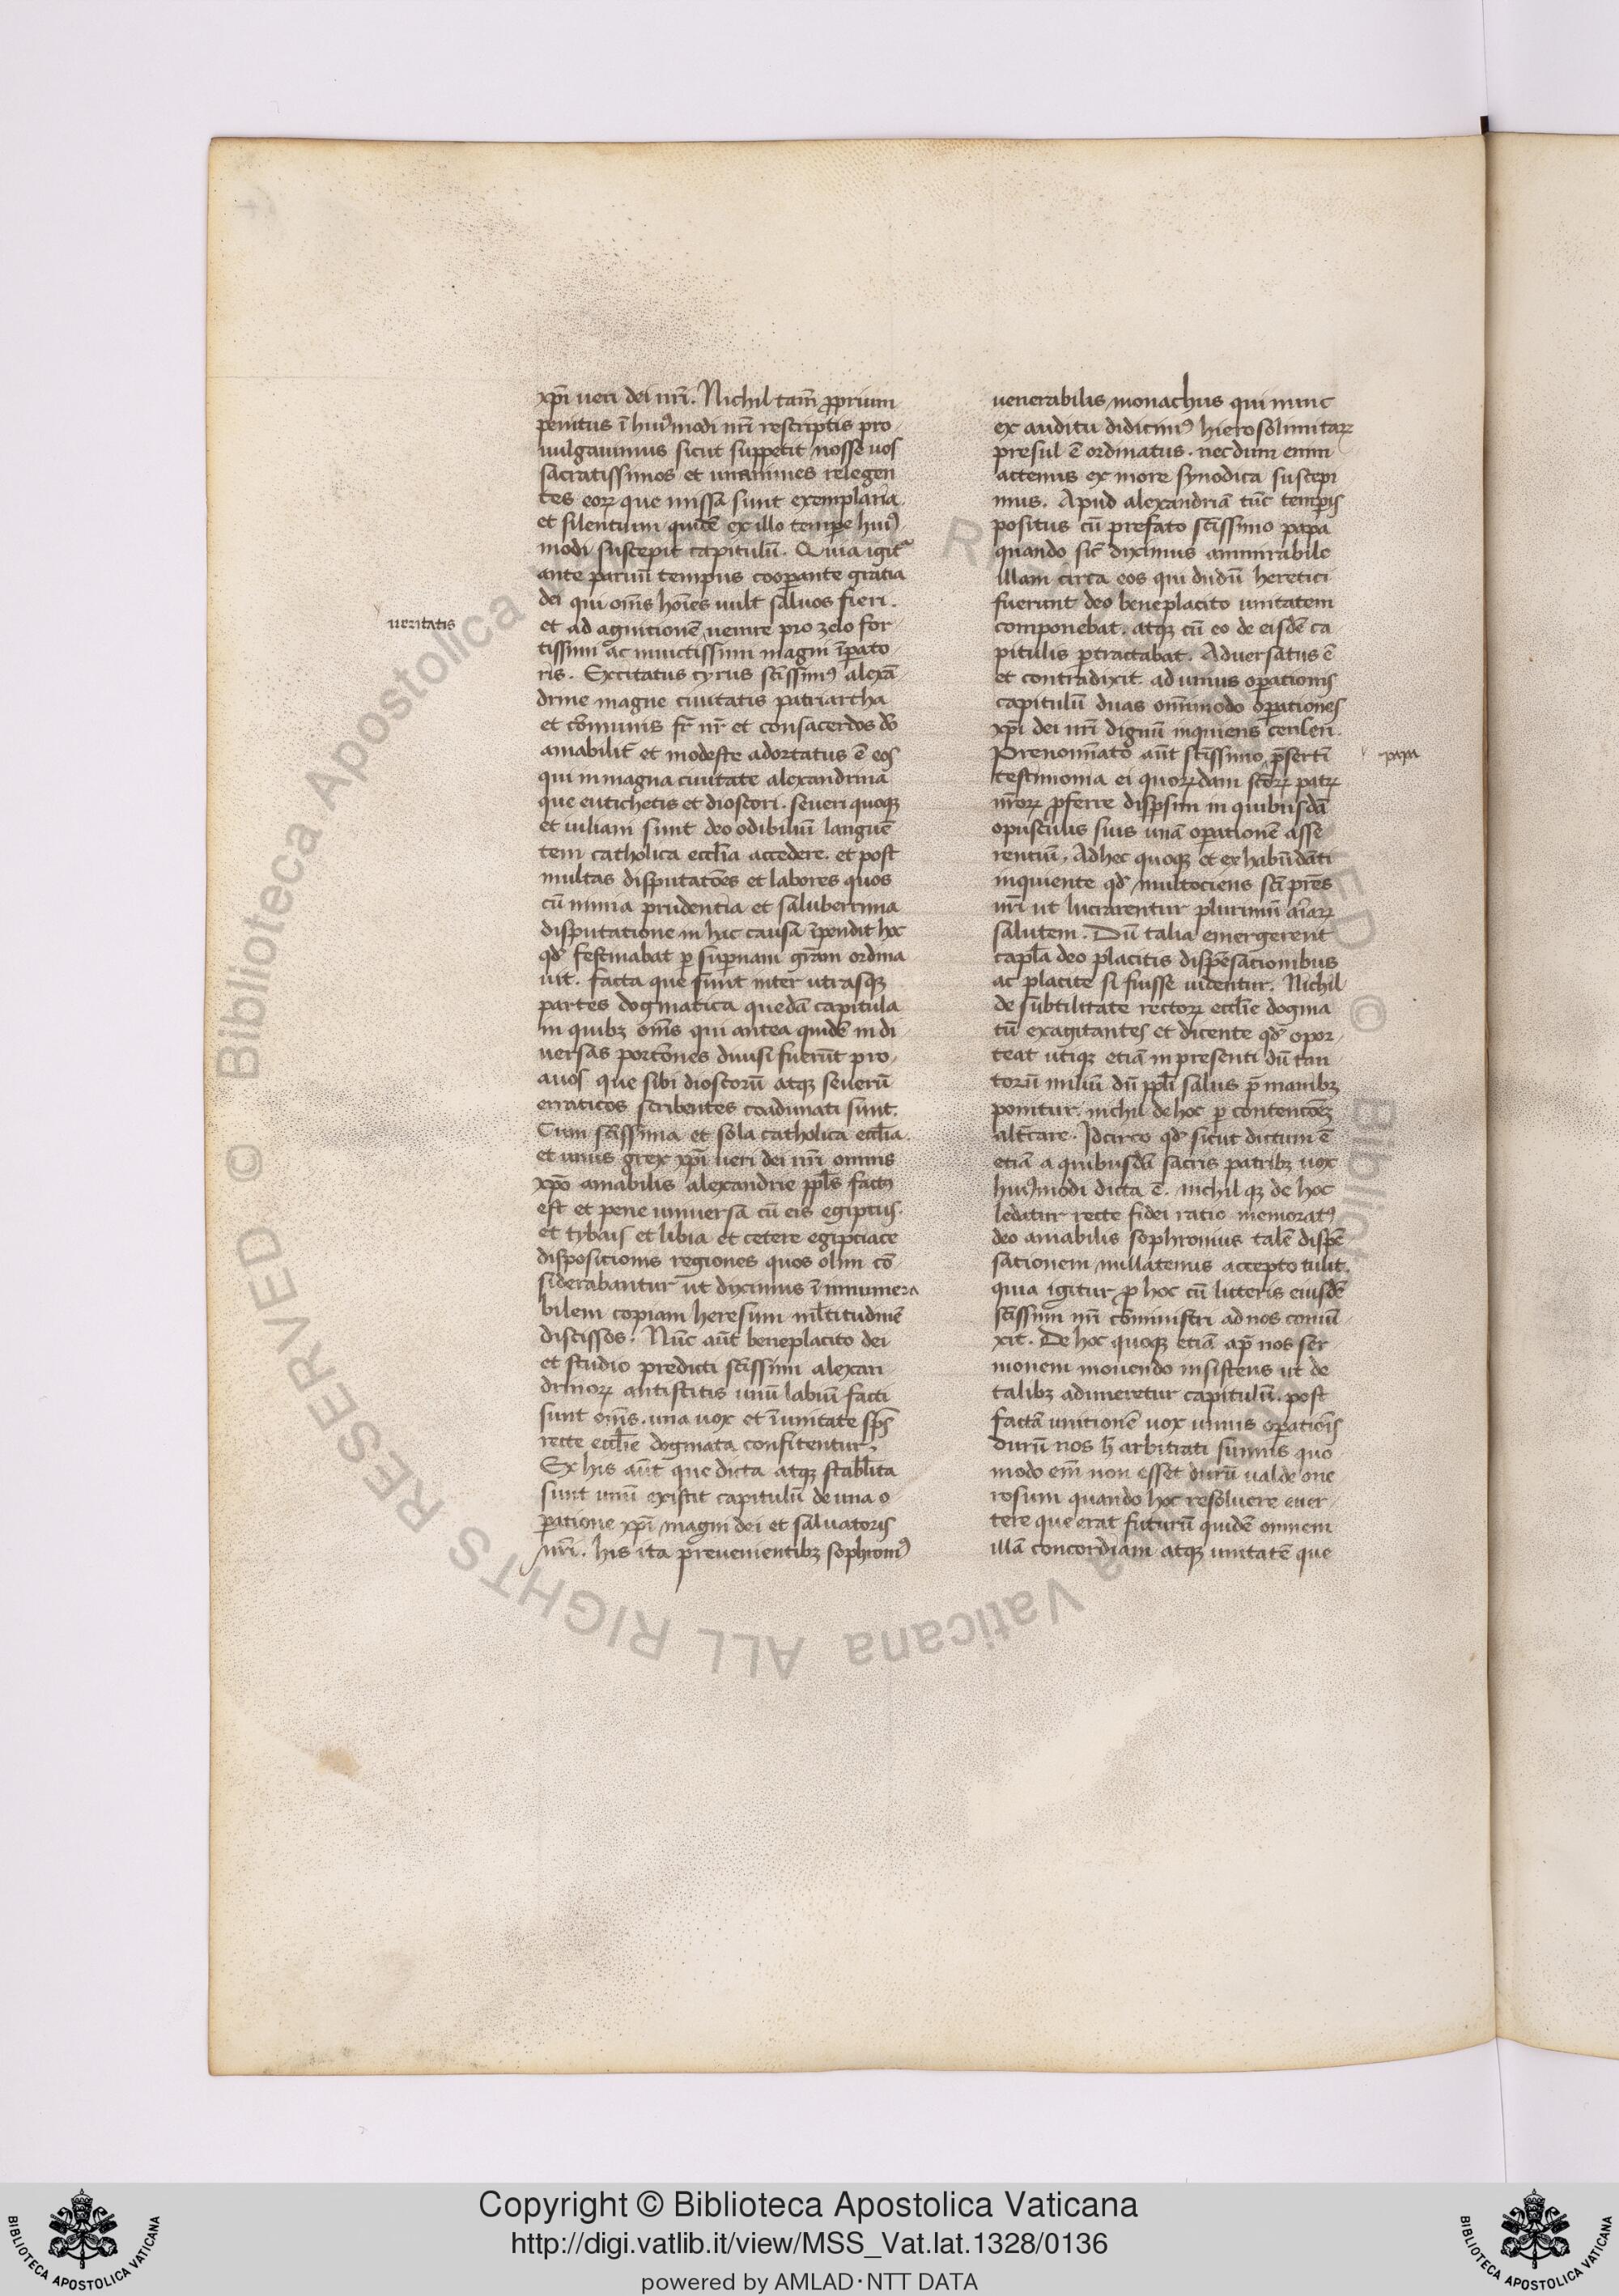 xp̄i ueri dei nr̄i. Nichil tam̄ ꝓprium
penitus ī huiꝰmodi nr̄i rescriptis pro
uulgauimus sicut suppetit nosse uos
sacratissimos et unanimes relegen
tes eoꝝ que missa sunt exemplaria.
et silentium quidē ex illo tempe huiꝰ
modi suscepit capitulū. Quia igit᷑
ante paruū tempus cooꝑante gratia
dei qui om̄s hoīes uult saluos fieri.
ueritatis
et ad agnitionē uenire pro zelo for
tissimi ac inuictissimi magni īꝑato
ris. Excitatus cyrus sc̄issimꝰ alexā
drine magne ciuitatis patriarcha
et cōmunis fr̄ nr̄ et consacerdos dō
amabilit᷑ et modeste adortatus ē eos
qui in magna ciuitate alexandrina
que eutichetis et dioscori. seueri quoqꝫ
et iuliani sunt deo odibiliū languē
tem catholica eccl̄ia accedere. et post
multas disputatōes et labores quos
cū nimia prudentia et saluberrima
disputatione in hac causa īpendit hoc
qd̄ festinabat ꝑ suꝑnam gr̄am ordina
uit. facta que sunt inter utrasqꝫ
partes dogmatica quedā capitula
in quibꝫ om̄s qui antea quidē in di
uersas portiones diuisi fuerūt pro
auos que sibi dioscorū atqꝫ seuerū
erraticos scribentes coadunati sunt.
Cum sc̄issima et sola catholica eccl̄ia.
et unus grex xp̄i ueri dei nr̄i omnis
xp̄o amabilis alexandrie ppl̄s factꝰ
est et pene uniuersa cū eis egiptus.
et tybais et libia et cetere egiptiace
dispositionis regiones quos olim cō
siderabantur ut diximus ī innumera
bilem copiam heresum ml̄titudinē
discissos. Nūc aūt beneplacito dei
et studio predicti sc̄issimi alexan
drinoꝝ antistitis unū labiū facti
sunt om̄s. una uox et ī unitate sp̄s
recte eccl̄ie dogmata confitentur.
Ex his aūt que dicta atqꝫ stabl̄ita
sunt unū existit capitulū de una o
ꝑatione xp̄i magni dei et saluatoris
nr̄i. his ita preuenientibꝫ sophroniꝰ
uenerabilis monachus qui nunc
ex auditu didicimꝰ hierosolimitaꝝ
presul ē ordinatus. necdum enim
actenus ex more synodica suscepi
mus. Apud alexandriā tūc temꝑis
positus cū prefato sc̄issimo papa
quando sic̄ diximus ammirabile
illam circa eos qui dudū heretici
fuerunt deo beneplacito unitatem
componebat. atqꝫ cū eo de eisdē ca
pitulis ꝑtractabat. Aduersatus ē
et contradixit ad unius oꝑationis
capitulū duas om̄imodo oꝑationes
xp̄i dei nr̄i dignū inquiens censeri.
Prenoīnato aūt sc̄issimo p̄sertī
papa
testimonia ei quoꝝdam sc̄oꝝ patꝝ
nr̄oꝝ ꝓferre disꝑsim in quibusdā
opusculis suis unā oꝑationē asse
rentiū. Ad hec quoqꝫ et ex habūdāti
inquiente qd̄ multociens sc̄i pr̄es
nr̄i ut lucrarentur plurimū aīaꝝ
salutem. Dū talia emergerent
capl̄a deo placitis dispēsacionibus
ac placite si fuisse uidentur. Nichil
de subtilitate rectoꝝ eccl̄ie dogma
tū exagitantes et dicente qd̄ opor
teat utiqꝫ etiā in presenti dū tan
torū miliū dū ppl̄i salus p̄ manibꝫ
ponitur. nichil de hoc ꝑ contencōeꝫ
alt᷑care. Idcirco qd̄ sicut dictum ē
etiā a quibusdā sacris patribꝫ uox
huiꝰmodi dicta ē. nichil qꝫ de hoc
ledatur recte fidei ratio memoratꝰ
deo amabilis sophronius talē dispē
sationem nullatenus accepto tulit.
quia igitur ꝓ hoc cū litteris eiusdē
sc̄issimi nr̄i cōministri ad nos coniū
xit. De hoc quoqꝫ etiā ap̄ nos ser
monem mouendo insistens ut de
talibꝫ adimeretur capitulū. post
factā unitionē uox unius oꝑatiōis
durū nos h̄ arbitrati sumus quo
modo em̄ non esset durū ualde one
rosum quando hoc resoluere euer
tere que erat futurū quidē omnem
illā concordiam atqꝫ unitatē que
Copyright © Biblioteca Apostolica Vaticana
http://digi.vatlib.it/view/MSS_Vat.lat.1328/0136
powered by AMLAD·NTT DATA